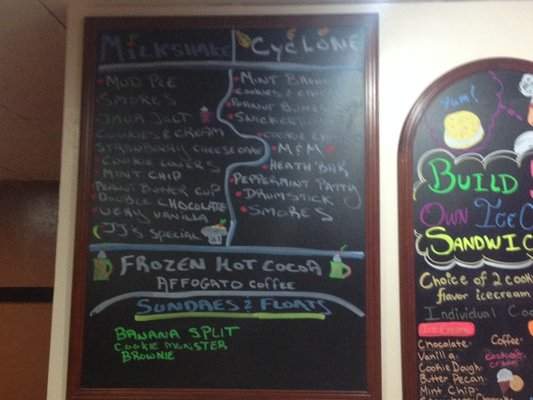 Milkshake
Mud Pie
Smores
Java Jolt
Cookies & Cream
Strawberry Cheesecake
Cookie Lovers
Mint Chip
Peanut Butter Cup
Double Chocolate
Very Vanilla
JJ's Special
Cyclone
Mint
Cookies &
M&M
Heath Bar
Peppermint Patty
Drumstick
Smores
Frozen Hot Cocoa
Affogato Coffee
Sundaes & Floats
Banana Split
Cookie Monster
Brownie
Yum!
Build
Own Ice
Sandwic
Choice of 2 cook
flavor icecream
Individual
Chocolate
Vanilla
Cookie Dough
Butter Pecan
Mint Chip
Coffee